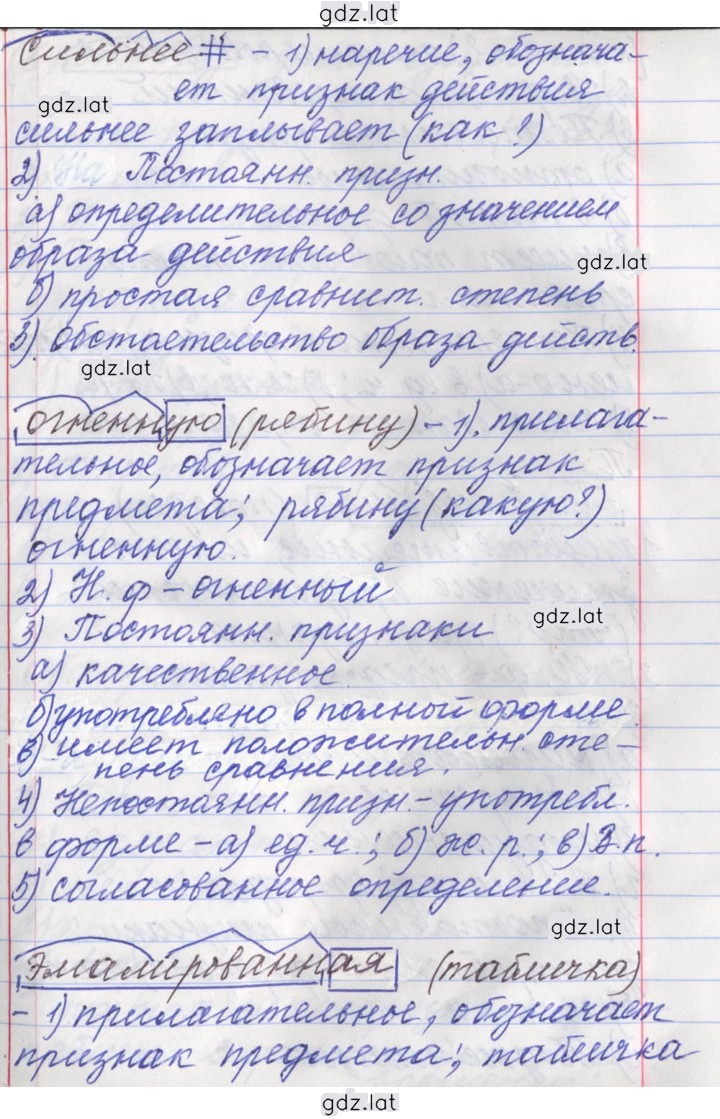 gdz.lat
Сильнее # - 1) наречие, обознача-
gdz.lat
ет признак действия
сильнее заплывает (как?)
2) Постоянн. призн.
а) определительное со значением
образа действия
gdz.lat
б) простая сравнит. степень
3) обстоятельство образа действ.
gdz.lat
огненную (рябину) - 1). прилага-
тельное, обозначает признак
предмета; рябину (какую?)
огненную.
2) Н. ф - огненный
gdz.lat
3) Постоянн. признаки
а) качественное
б) употреблено в полной форме.
в) имеет положительн. сте-
пень сравнения.
4) Непостоянн. призн. - употребл.
в форме - а) ед. ч.; б) ж. р.; в) В. п.
5) согласованное определение.
gdz.lat
эмалированная (табличка)
- 1) прилагательное, обозначает
признак предмета; табличка
gdz.lat